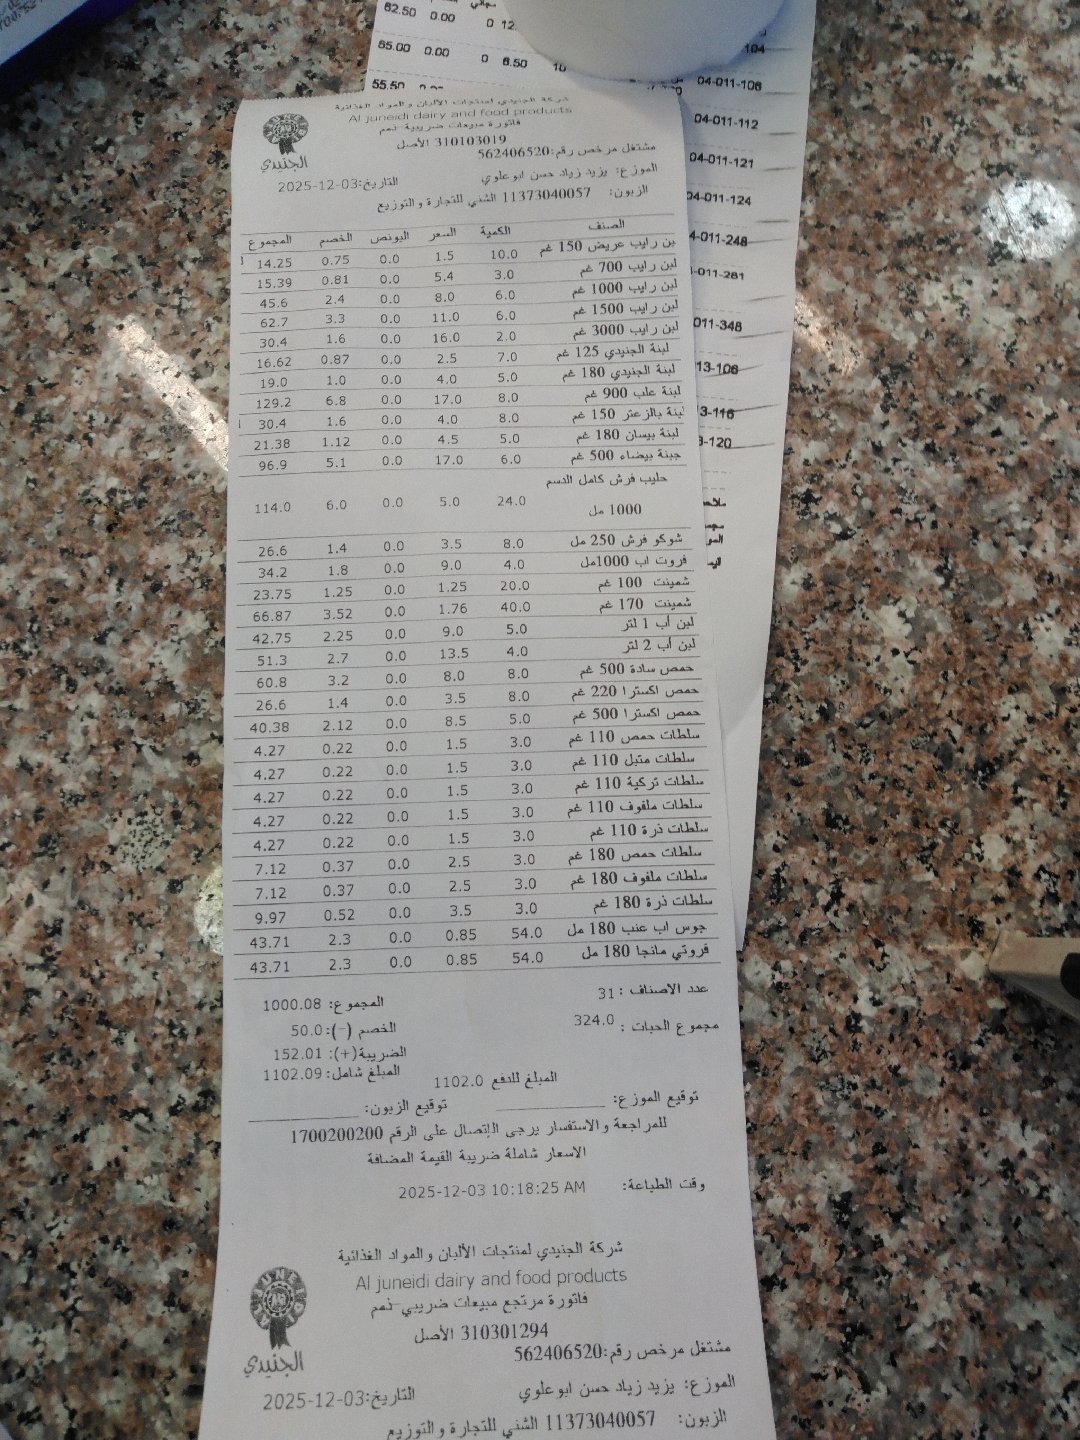 62.50 0.00 0 12.
104
65.00 0.00 0 6.50 10
04-011-106
55.50
04-011-112
04-011-121
04-011-124
4-011-248
-011-281
011-348
13-106
3-116
3-120
شركة الجنيدي لمنتجات الألبان والمواد الغذائية
Al juneidi dairy and food products
فاتورة مبيعات ضريبية-ذمم
310103019 الأصل
مشتغل مرخص رقم:562406520
الجنيدي
الموزع: يزيد زياد حسن ابوعلوي
التاريخ:2025-12-03
الزبون: 11373040057 الشني للتجارة والتوزيع
الصنف الكمية السعر البونص الخصم المجموع
بن رايب عريض 150 غم 10.0 1.5 0.0 0.75 14.25
لبن رايب 700 غم 3.0 5.4 0.0 0.81 15.39
لبن رايب 1000 غم 6.0 8.0 0.0 2.4 45.6
لبن رايب 1500 غم 6.0 11.0 0.0 3.3 62.7
لبن رايب 3000 غم 2.0 16.0 0.0 1.6 30.4
لبنة الجنيدي 125 غم 7.0 2.5 0.0 0.87 16.62
لبنة الجنيدي 180 غم 5.0 4.0 0.0 1.0 19.0
لبنة علب 900 غم 8.0 17.0 0.0 6.8 129.2
لبنة بالزعتر 150 غم 8.0 4.0 0.0 1.6 30.4
لبنة بيسان 180 غم 5.0 4.5 0.0 1.12 21.38
جبنة بيضاء 500 غم 6.0 17.0 0.0 5.1 96.9
حليب فرش كامل الدسم
1000 مل 24.0 5.0 0.0 6.0 114.0
شوكو فرش 250 مل 8.0 3.5 0.0 1.4 26.6
فروت اب 1000مل 4.0 9.0 0.0 1.8 34.2
شمينت 100 غم 20.0 1.25 0.0 1.25 23.75
شمينت 170 غم 40.0 1.76 0.0 3.52 66.87
لبن أب 1 لتر 5.0 9.0 0.0 2.25 42.75
لبن أب 2 لتر 4.0 13.5 0.0 2.7 51.3
حمص سادة 500 غم 8.0 8.0 0.0 3.2 60.8
حمص اكسترا 220 غم 8.0 3.5 0.0 1.4 26.6
حمص اكسترا 500 غم 5.0 8.5 0.0 2.12 40.38
سلطات حمص 110 غم 3.0 1.5 0.0 0.22 4.27
سلطات متبل 110 غم 3.0 1.5 0.0 0.22 4.27
سلطات تركية 110 غم 3.0 1.5 0.0 0.22 4.27
سلطات ملفوف 110 غم 3.0 1.5 0.0 0.22 4.27
سلطات ذرة 110 غم 3.0 1.5 0.0 0.22 4.27
سلطات حمص 180 غم 3.0 2.5 0.0 0.37 7.12
سلطات ملفوف 180 غم 3.0 2.5 0.0 0.37 7.12
سلطات ذرة 180 غم 3.0 3.5 0.0 0.52 9.97
جوس اب عنب 180 مل 54.0 0.85 0.0 2.3 43.71
فروتي مانجا 180 مل 54.0 0.85 0.0 2.3 43.71
عدد الاصناف : 31 المجموع: 1000.08
مجموع الحبات : 324.0 الخصم (-):50.0
الضريبة(+): 152.01
المبلغ شامل: 1102.09
المبلغ للدفع 1102.0
توقيع الموزع: توقيع الزبون:
للمراجعة والاستفسار يرجى الإتصال على الرقم 1700200200
الاسعار شاملة ضريبة القيمة المضافة
وقت الطباعة: 2025-12-03 10:18:25 AM
شركة الجنيدي لمنتجات الألبان والمواد الغذائية
Al juneidi dairy and food products
فاتورة مرتجع مبيعات ضريبي-ذمم
310301294 الأصل
مشتغل مرخص رقم:562406520
الجنيدي
الموزع: يزيد زياد حسن ابوعلوي
التاريخ:2025-12-03
الزبون: 11373040057 الشني للتجارة والتوزيع